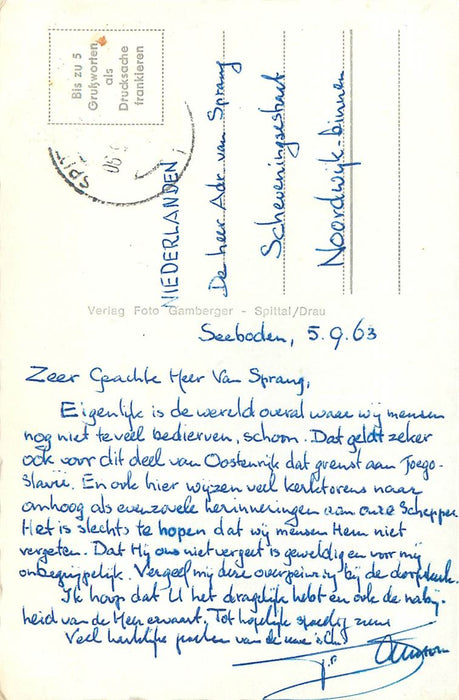 Bis zu 5
Grußworten,
als
Drucksache
frankieren
SPIT
NIEDERLANDEN
De heer Adr van Sprang
Scheveningsestraat
Noordwijk-binnen
Verlag Foto Gamberger - Spittal/Drau
Seeboden, 5.9.63
Zeer Geachte Heer Van Sprang,
Eigenlijk is de wereld overal waar wij mensen
nog niet te veel bedierven, schoon. Dat geldt zeker
ook voor dit deel van Oostenrijk dat grenst aan Joego-
slavië. En ook hier wijzen veel kerktorens naar
omhoog als evenzovele herinneringen aan onze Schepper
Het is slechts te hopen dat wij mensen Hem niet
vergeten. Dat Hij ons niet vergeet is geweldig en voor mij
onbegrijpelijk. Vergeef mij deze overpeinzing bij de dorpskerk.
Ik hoop dat U het dragelijk hebt en ook de nabij-
heid van de Heer ervaart. Tot hopelijk spoedig ziens
Veel hartelijke groeten van de